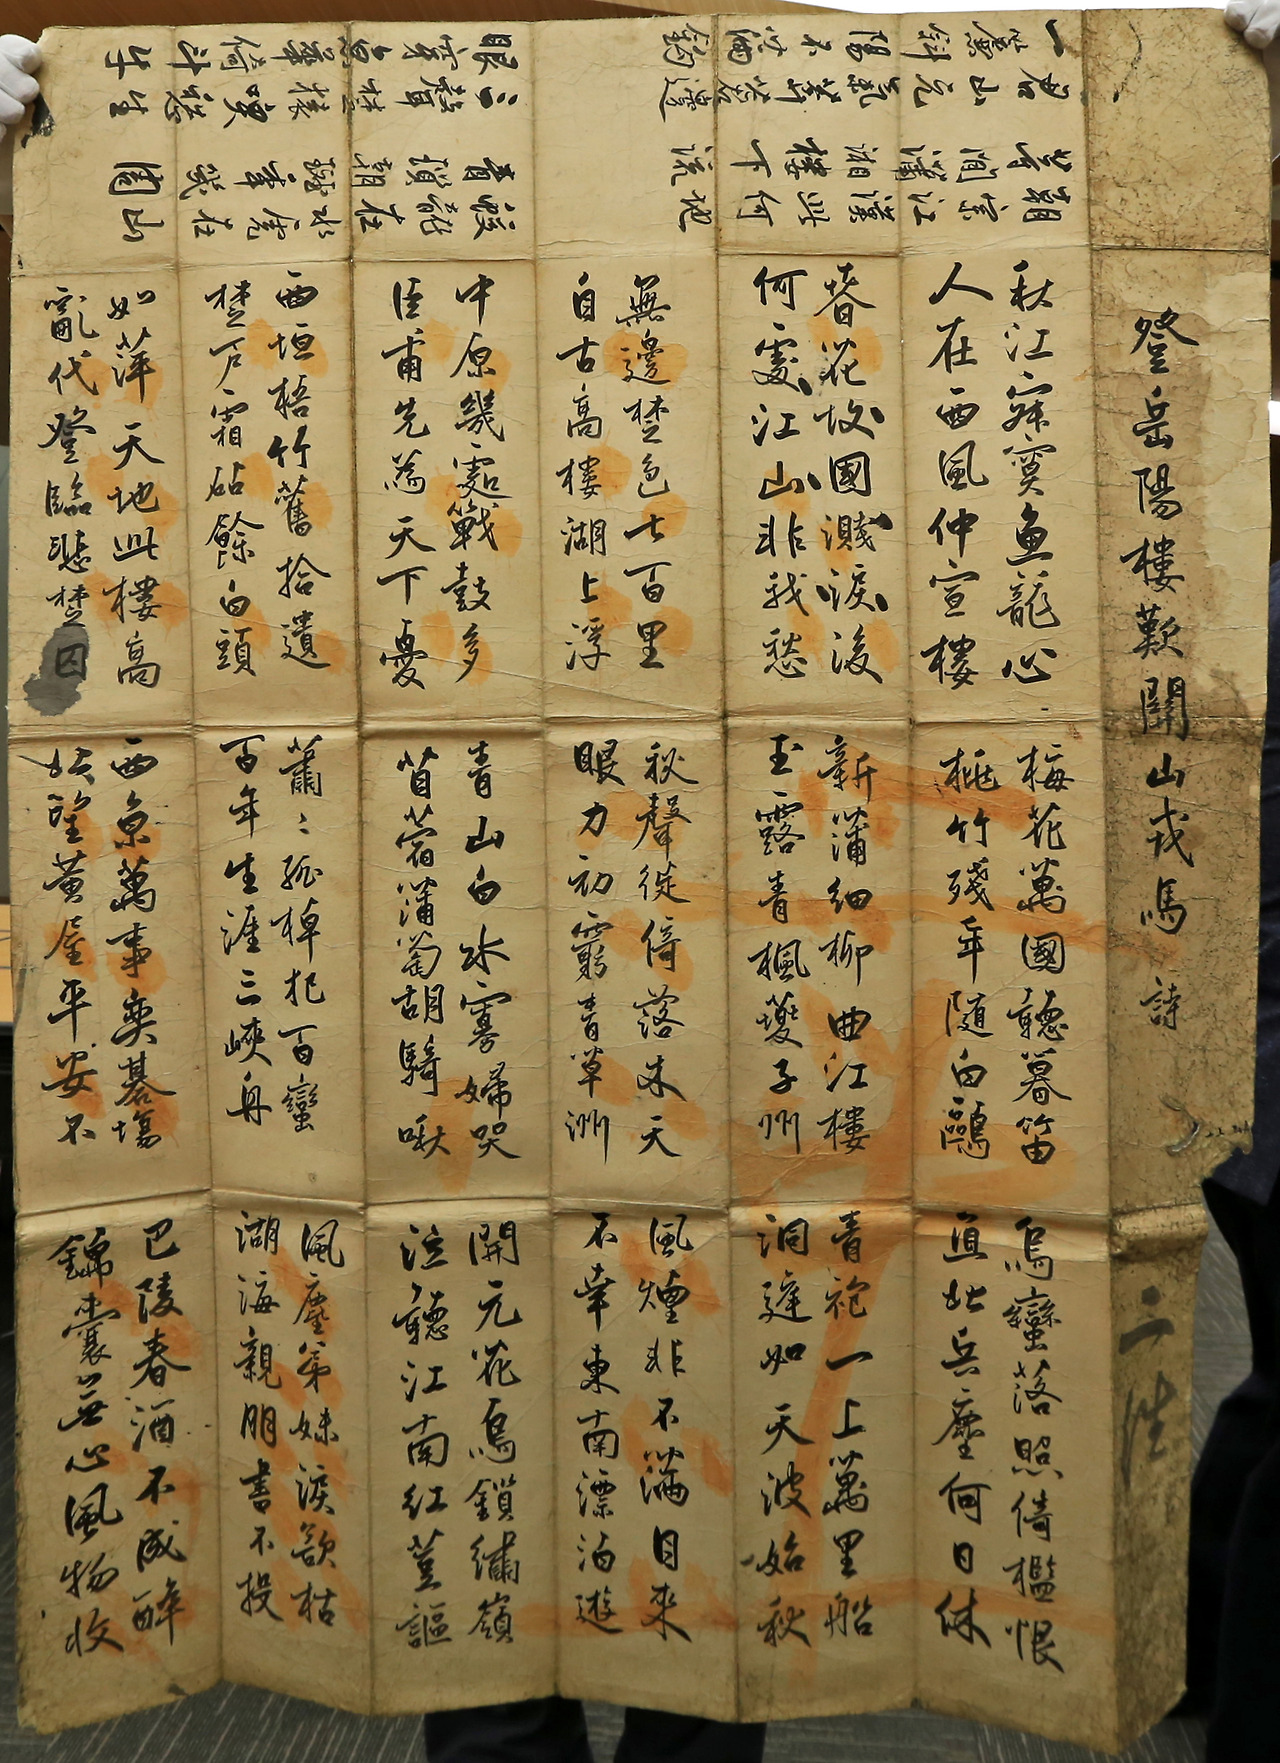 登岳陽樓歎關山戎馬 詩
秋江寂寞魚龍心
人在西風仲宣樓
梅花萬國聽暮笛
桃竹殘年隨白鷗
烏蠻落照倚檻恨
直北兵塵何日休
春花故國濺淚後
何處江山非我愁
新蒲細柳曲江樓
玉露青楓夔子州
青袍一上萬里船
洞庭如天波始秋
無邊楚色七百里
自古高樓湖上浮
秋聲徙倚落木天
眼力初窮青草洲
風煙非不滿目來
不幸東南漂泊遊
中原幾處戰鼓多
臣甫先爲天下憂
青山白水寡婦哭
苜蓿蒲萄胡騎啾
開元花鳥鎖繡嶺
泣聽江南紅荳謳
西垣梧竹舊拾遺
楚戶霜砧餘白頭
蕭〻孤棹犯百蠻
百年生涯三峽舟
風塵弟妹淚欲枯
湖海親朋書不投
如萍天地此樓高
亂代登臨悲楚囚
西京萬事奕碁場
北望黃屋平安不
巴陵春酒不成醉
錦囊無心風物收
朝宗江漢此何地
等閒瀟湘樓下流
君山元氣莽蒼邊
一簾斜陽不滿鈎
龍在水虎在山
青瑣朝班年幾周
三聲楚猿喚愁生
眼穿京華倚斗牛